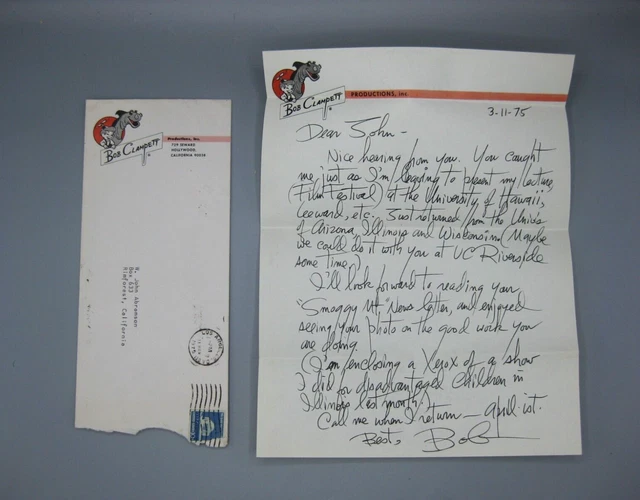 BOB CLAMPETT
Productions, Inc.
729 SEWARD
HOLLYWOOD,
CALIFORNIA 90038
Box 633
Rimforest, California
BOB CLAMPETT
PRODUCTIONS, Inc.
3-11-75
Dear John -
Nice hearing from you. You caught
me just as I'm leaving to present my lecture
(Film Festival) at the University of Hawaii,
Leeward, etc. Just returned from the Univ's
of Arizona, Illinois and Wisconsin. (Maybe
we could do it with you at UC Riverside
some time.)
I'll look forward to reading your
"Smoggy Mt." News letter, and enjoyed
seeing your photo on the good work you
are doing.
(I'm enclosing a Xerox of a show
I did for disadvantaged children in
Illinois last month.)
Call me when I return — April 1st.
Best, Bob